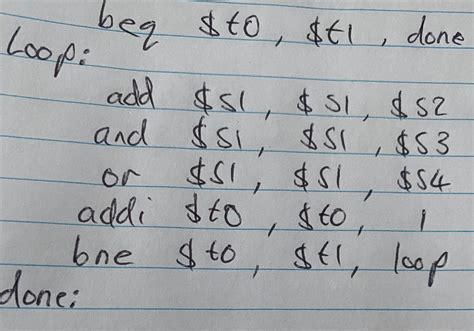 beq $t0, $t1, done
Loop:
add $s1, $s1, $s2
and $s1, $s1, $s3
or $s1, $s1, $s4
addi $t0, $t0, 1
bne $t0, $t1, loop
done: